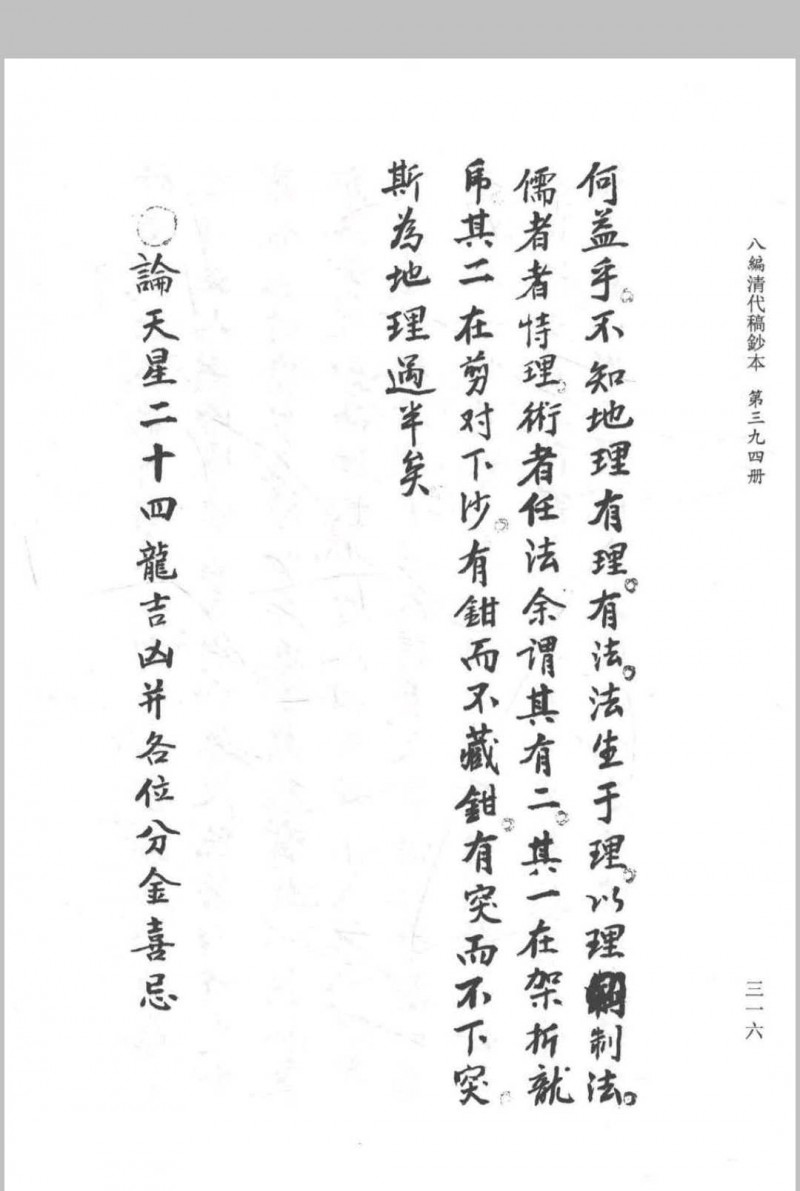 八編清代稿鈔本　第三九四册
三一六
何益乎。不知地理有理。有法。法生于理。以理制法。
儒者者恃理。術者任法余谓其有二。其一在架折龍
虎其二在剪对下沙。有鉗而不藏鉗。有突而不下突。
斯為地理過半矣
○論天星二十四龍吉凶并各位分金喜忌